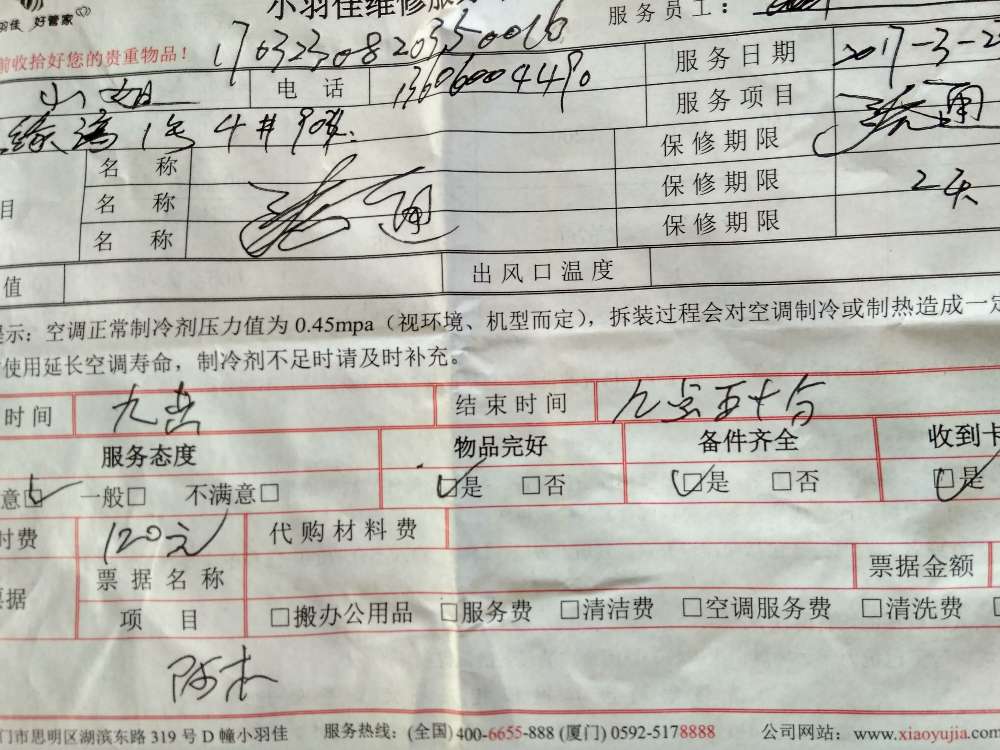 羽佳 好管家
小羽佳维修服
服务员工：
前收拾好您的贵重物品！
17032308203550016
服务日期 2017-3-2
电话 13606004490
服务项目 疏通
1号 4#90
名称 保修期限
名称 疏通 保修期限 2天
名称 保修期限
目
值 出风口温度
提示：空调正常制冷剂压力值为 0.45mpa（视环境、机型而定），拆装过程会对空调制冷或制热造成一定
使用延长空调寿命，制冷剂不足时请及时补充。
时间 九点 结束时间 九点五十分
服务态度 物品完好 备件齐全 收到卡
意□ 一般□ 不满意□ □是 □否 □是 □否 □是
时费 120元 代购材料费
票据 票据名称 票据金额
项目 □搬办公用品 □服务费 □清洁费 □空调服务费 □清洗费
门市思明区湖滨东路 319 号 D 幢小羽佳 服务热线：(全国) 400-6655-888 (厦门) 0592-5178888 公司网站：www.xiaoyujia.com